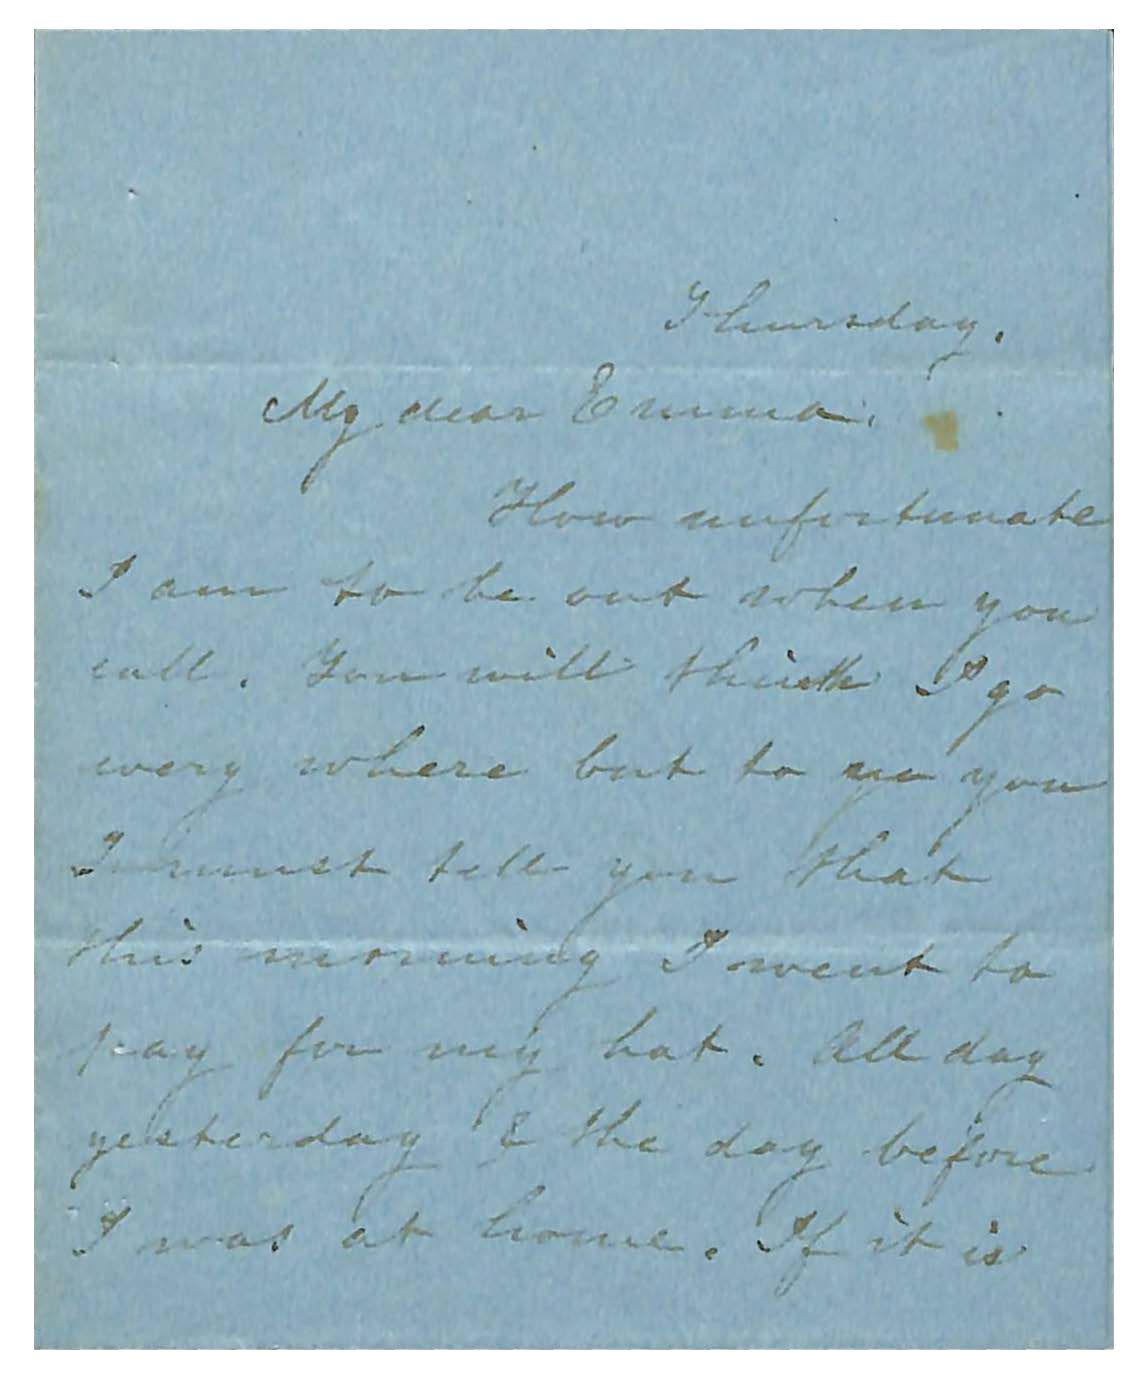 Thursday.
My dear Emma.
How unfortunate
I am to be out when you
call. You will think I go
every where but to you
I must tell you that
this morning I went to
pay for my hat. All day
yesterday & the day before
I was at home. If it is